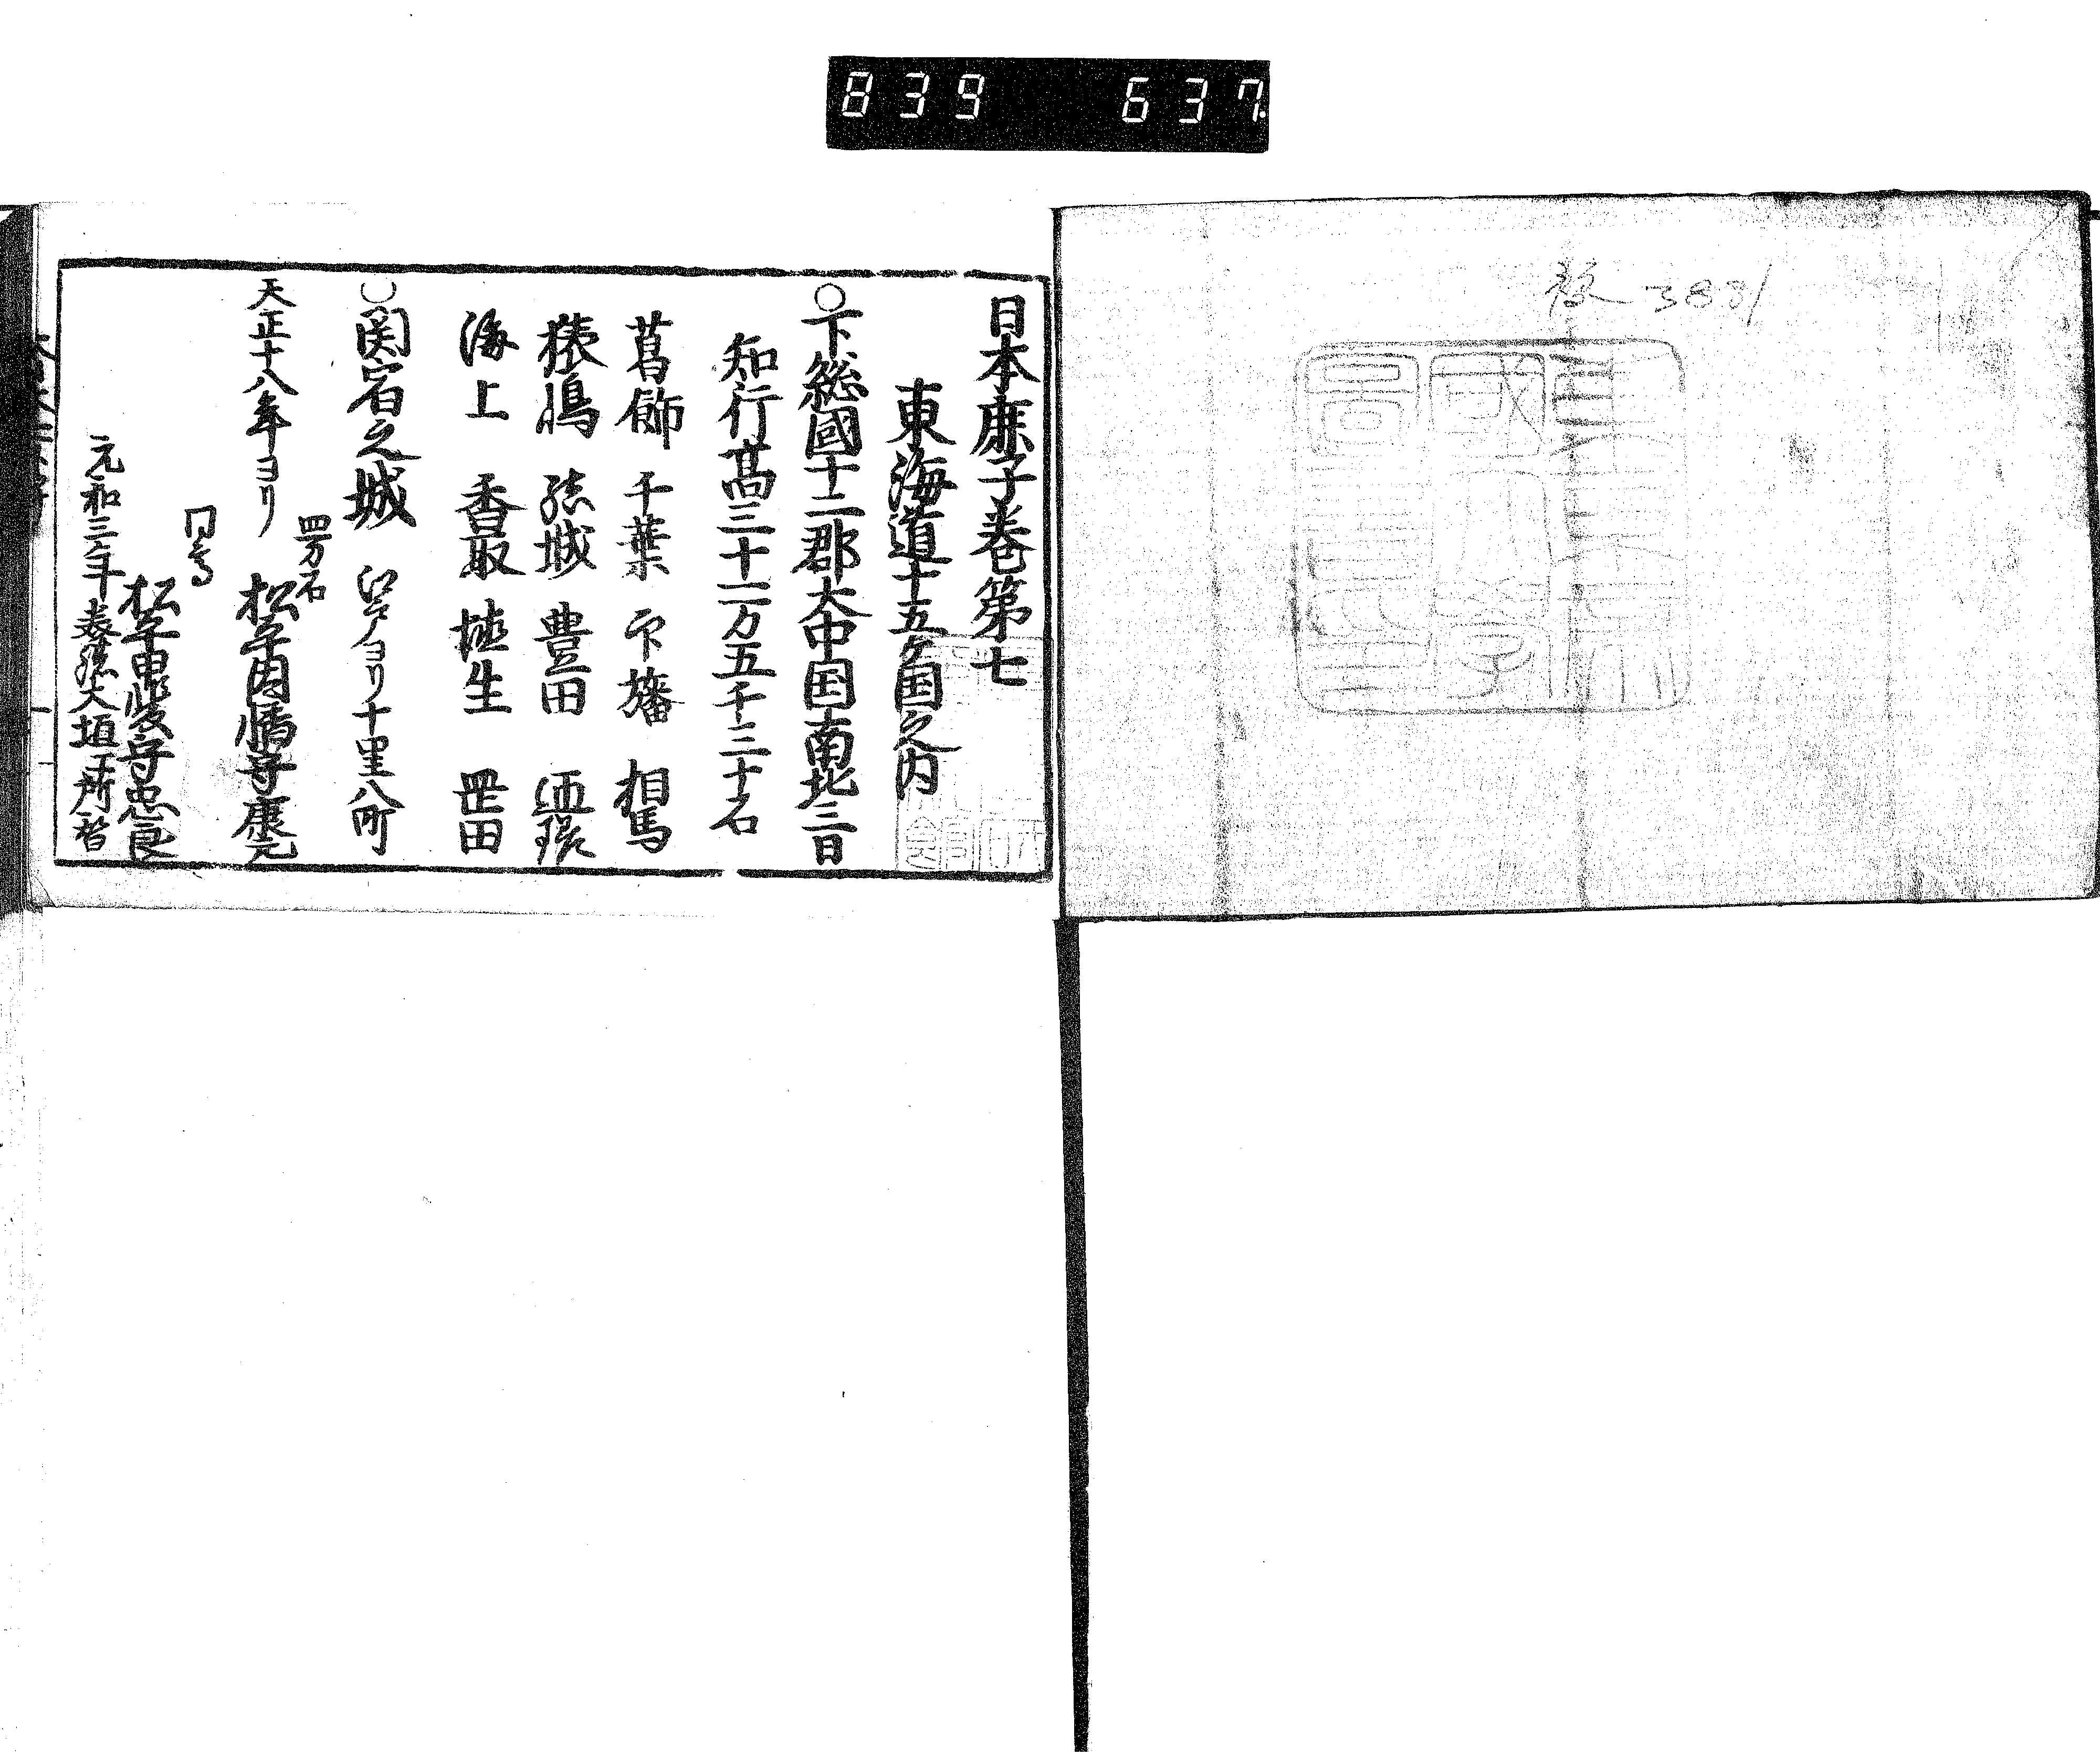 839 637
3881
日本鹿子巻第七
東海道十五ヶ国之内
○下総國十二郡大中国南北三日
知行高三十一万五千二十石
葛飾 千葉 印旛 相馬
猿嶋 結城 豊田 匝瑳
海上 香取 埴生 罡田
○関宿之城 江戸ヨリ十里八町
四万石
天正十八年ヨリ 松平因幡守康元
同高
松平甲斐守忠良
元和三年 大垣工所替